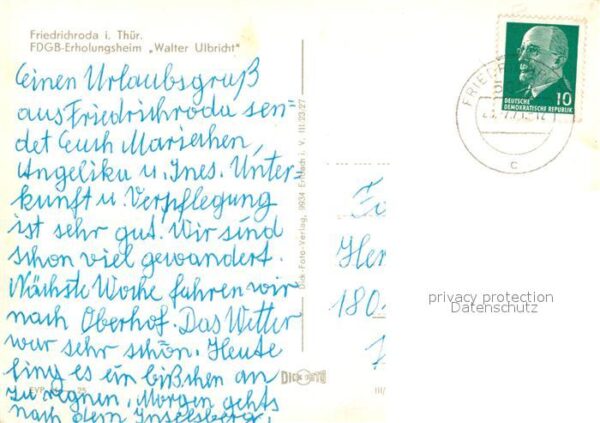 Friedrichroda i. Thür.
FDGB-Erholungsheim „Walter Ulbricht"
Einen Urlaubsgruß
aus Friedrichroda sen-
det Euch Mariechen,
Angelika u. Ines. Unter-
kunft u. Verpflegung
ist sehr gut. Wir sind
schon viel gewandert.
Nächste Woche fahren wir
nach Oberhof. Das Wetter
war sehr schön. Heute
fing es ein bißchen an
zu regnen, Morgen gehts
nach dem Inselsberg.
Dick-Foto-Verlag, 9934 Erlbach i. V. III 23/27
DICK FOTO
DEUTSCHE
DEMOKRATISCHE REPUBLIK
10
c
180
privacy protection
Datenschutz